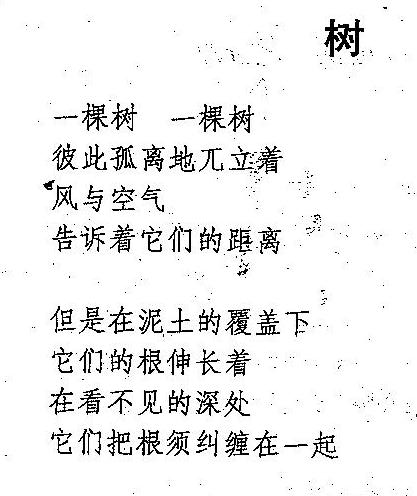 树
一棵树　一棵树
彼此孤离地兀立着
风与空气
告诉着它们的距离
但是在泥土的覆盖下
它们的根伸长着
在看不见的深处
它们把根须纠缠在一起